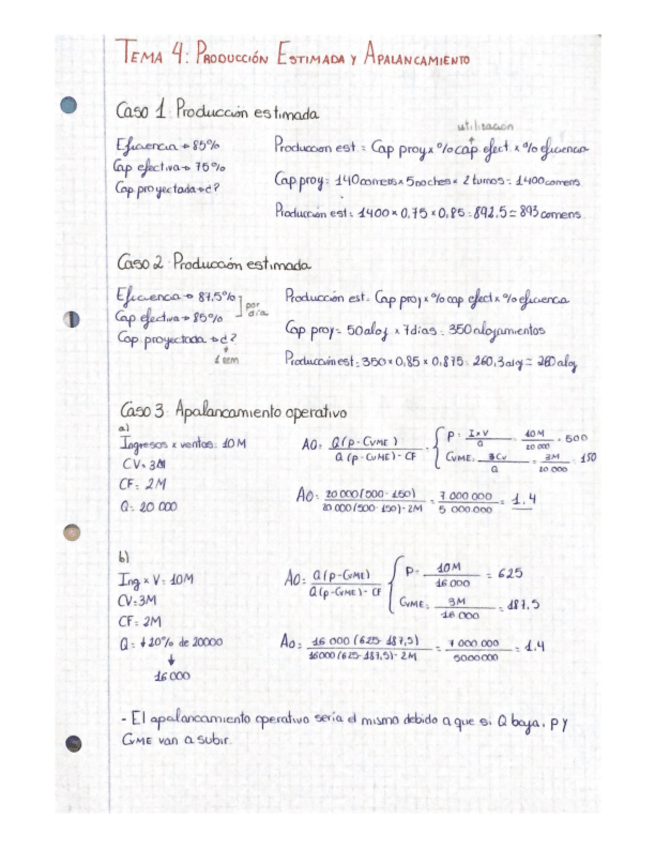 TEMA 4: PRODUCCIÓN ESTIMADA Y APALANCAMIENTO
Caso 1: Producción estimada
utilización
Eficiencia → 85%
Producción est = Cap proy x % cap efect x % eficiencia
Cap efectiva → 75%
Cap proyectada → ¿?
Cap proy = 140 comens x 5 noches x 2 turnos = 1400 comens
Producción est = 1400 x 0,75 x 0,85 = 892,5 = 893 comens
Caso 2: Producción estimada
Eficiencia → 87,5% ] por día
Producción est = Cap proy x % cap efect x % eficiencia
Cap efectiva → 85%
Cap proyectada → ¿?
1 sem
Cap proy = 50 aloj x 7 días = 350 alojamientos
Producción est = 350 x 0,85 x 0,875 = 260,3 aloj = 260 aloj
Caso 3: Apalancamiento operativo
a)
Ingresos x ventas: 10M
CV = 3M
CF = 2M
Q = 20 000
AO = Q(p - CVME) / Q(p - CVME) - CF
P = IxV / Q = 10M / 20 000 = 500
CVME = CV / Q = 3M / 20 000 = 150
AO = 20 000 (500 - 150) / 20 000 (500 - 150) - 2M = 7 000 000 / 5 000 000 = 1.4
b)
Ing x V = 10M
CV = 3M
CF = 2M
Q = ↓ 20% de 20000
↓
16 000
AO = Q(p - CVME) / Q(p - CVME) - CF
P = 10M / 16 000 = 625
CVME = 3M / 16 000 = 187,5
AO = 16 000 (625 - 187,5) / 16000 (625 - 187,5) - 2M = 7 000 000 / 5000000 = 1.4
- El apalancamiento operativo sería el mismo debido a que si Q baja, P y
CVME van a subir.